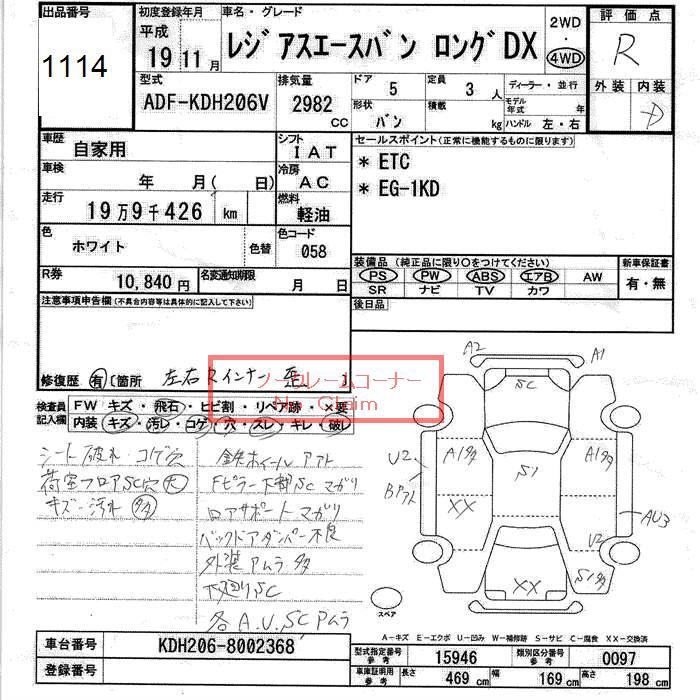 出品番号
1114
初度登録年月
平成
19 11 月
車名・グレード
レジアスエースバン ロングDX
2WD
・
4WD
評価点
R
外装 内装
D
型式
ADF-KDH206V
排気量
2982
CC
ドア 5
定員 3 人
形状
バン
積載
kg
ディーラー・並行
モデル年式 年
ハンドル 左・右
車歴
自家用
シフト
IAT
車検
年 月( 日)
冷房
AC
走行
19万9千426 km
燃料
軽油
色
ホワイト
色替
色コード
058
R券
10,840 円
名変通知期限
月 日
セールスポイント(正常に機能するものに限ります)
* ETC
* EG-1KD
装備品 (純正品に限り○をつけてください)
PS PW ABS エアB AW
SR ナビ TV カワ
新車保証書
有・無
後日品
注意事項申告欄(不具合内容等は具体的に記入して下さい)
修復歴 有 〔箇所 左右Rインナー 歪 〕
ノークレームコーナー
No Claim
検査員
記入欄
FW キズ・飛石・ヒビ割・リペア跡・×要
内装 キズ・汚レ・コゲ・穴・スレ・キレ・破レ
シート破れ・コゲ穴
荷室フロアSC穴 大
キズ・汚れ 多
鉄ホイールアト
Fピラー下部SC マガリ
ロアサポートマガリ
バックドアダンパー不良
外装アムラ多
下廻りSC
各A.U.SCアムラ
A2
A1
SC
U2
A1多
S1
A1多
Bアト
XX
AU3
U2
XX
S1多
スペア
A-キズ E-エクボ U-凹み W-補修跡 S-サビ C-腐食 XX-交換済
車台番号
KDH206-8002368
登録番号
型式指定番号
参考
15946
類別区分番号
参考
0097
車庫証明用
参考
長さ 469 cm 幅 169 cm 高さ 198 cm